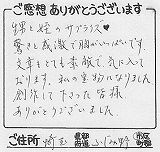 ご感想 ありがとうございます
甥と姪のサプライズ♡
驚きと感激で胸がいっぱいです。
文章もとても素敵で気に入って
おります。私の宝物になりました
創作して下さった皆様
ありがとうございました
ご住所 埼玉 都道府県 ふじみ野 市区町村